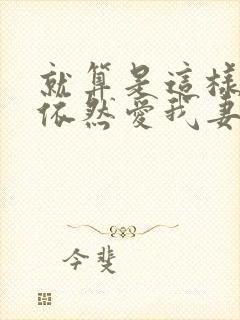 就算是這樣
依然愛我妻
今斐